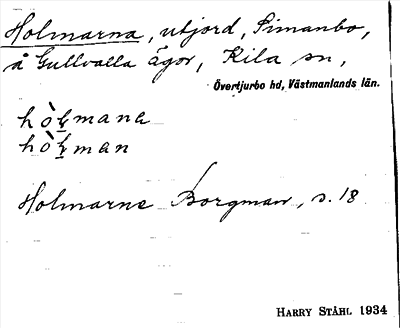 Holmarna, utjord, Simanbo,
å Gullvalla ägor, Kila sn,
Övertjurbo hd, Västmanlands län.
hòɫ̣mana
hòɫ̣man
Holmarne Borgman, s. 18
HARRY STÅHL 1934